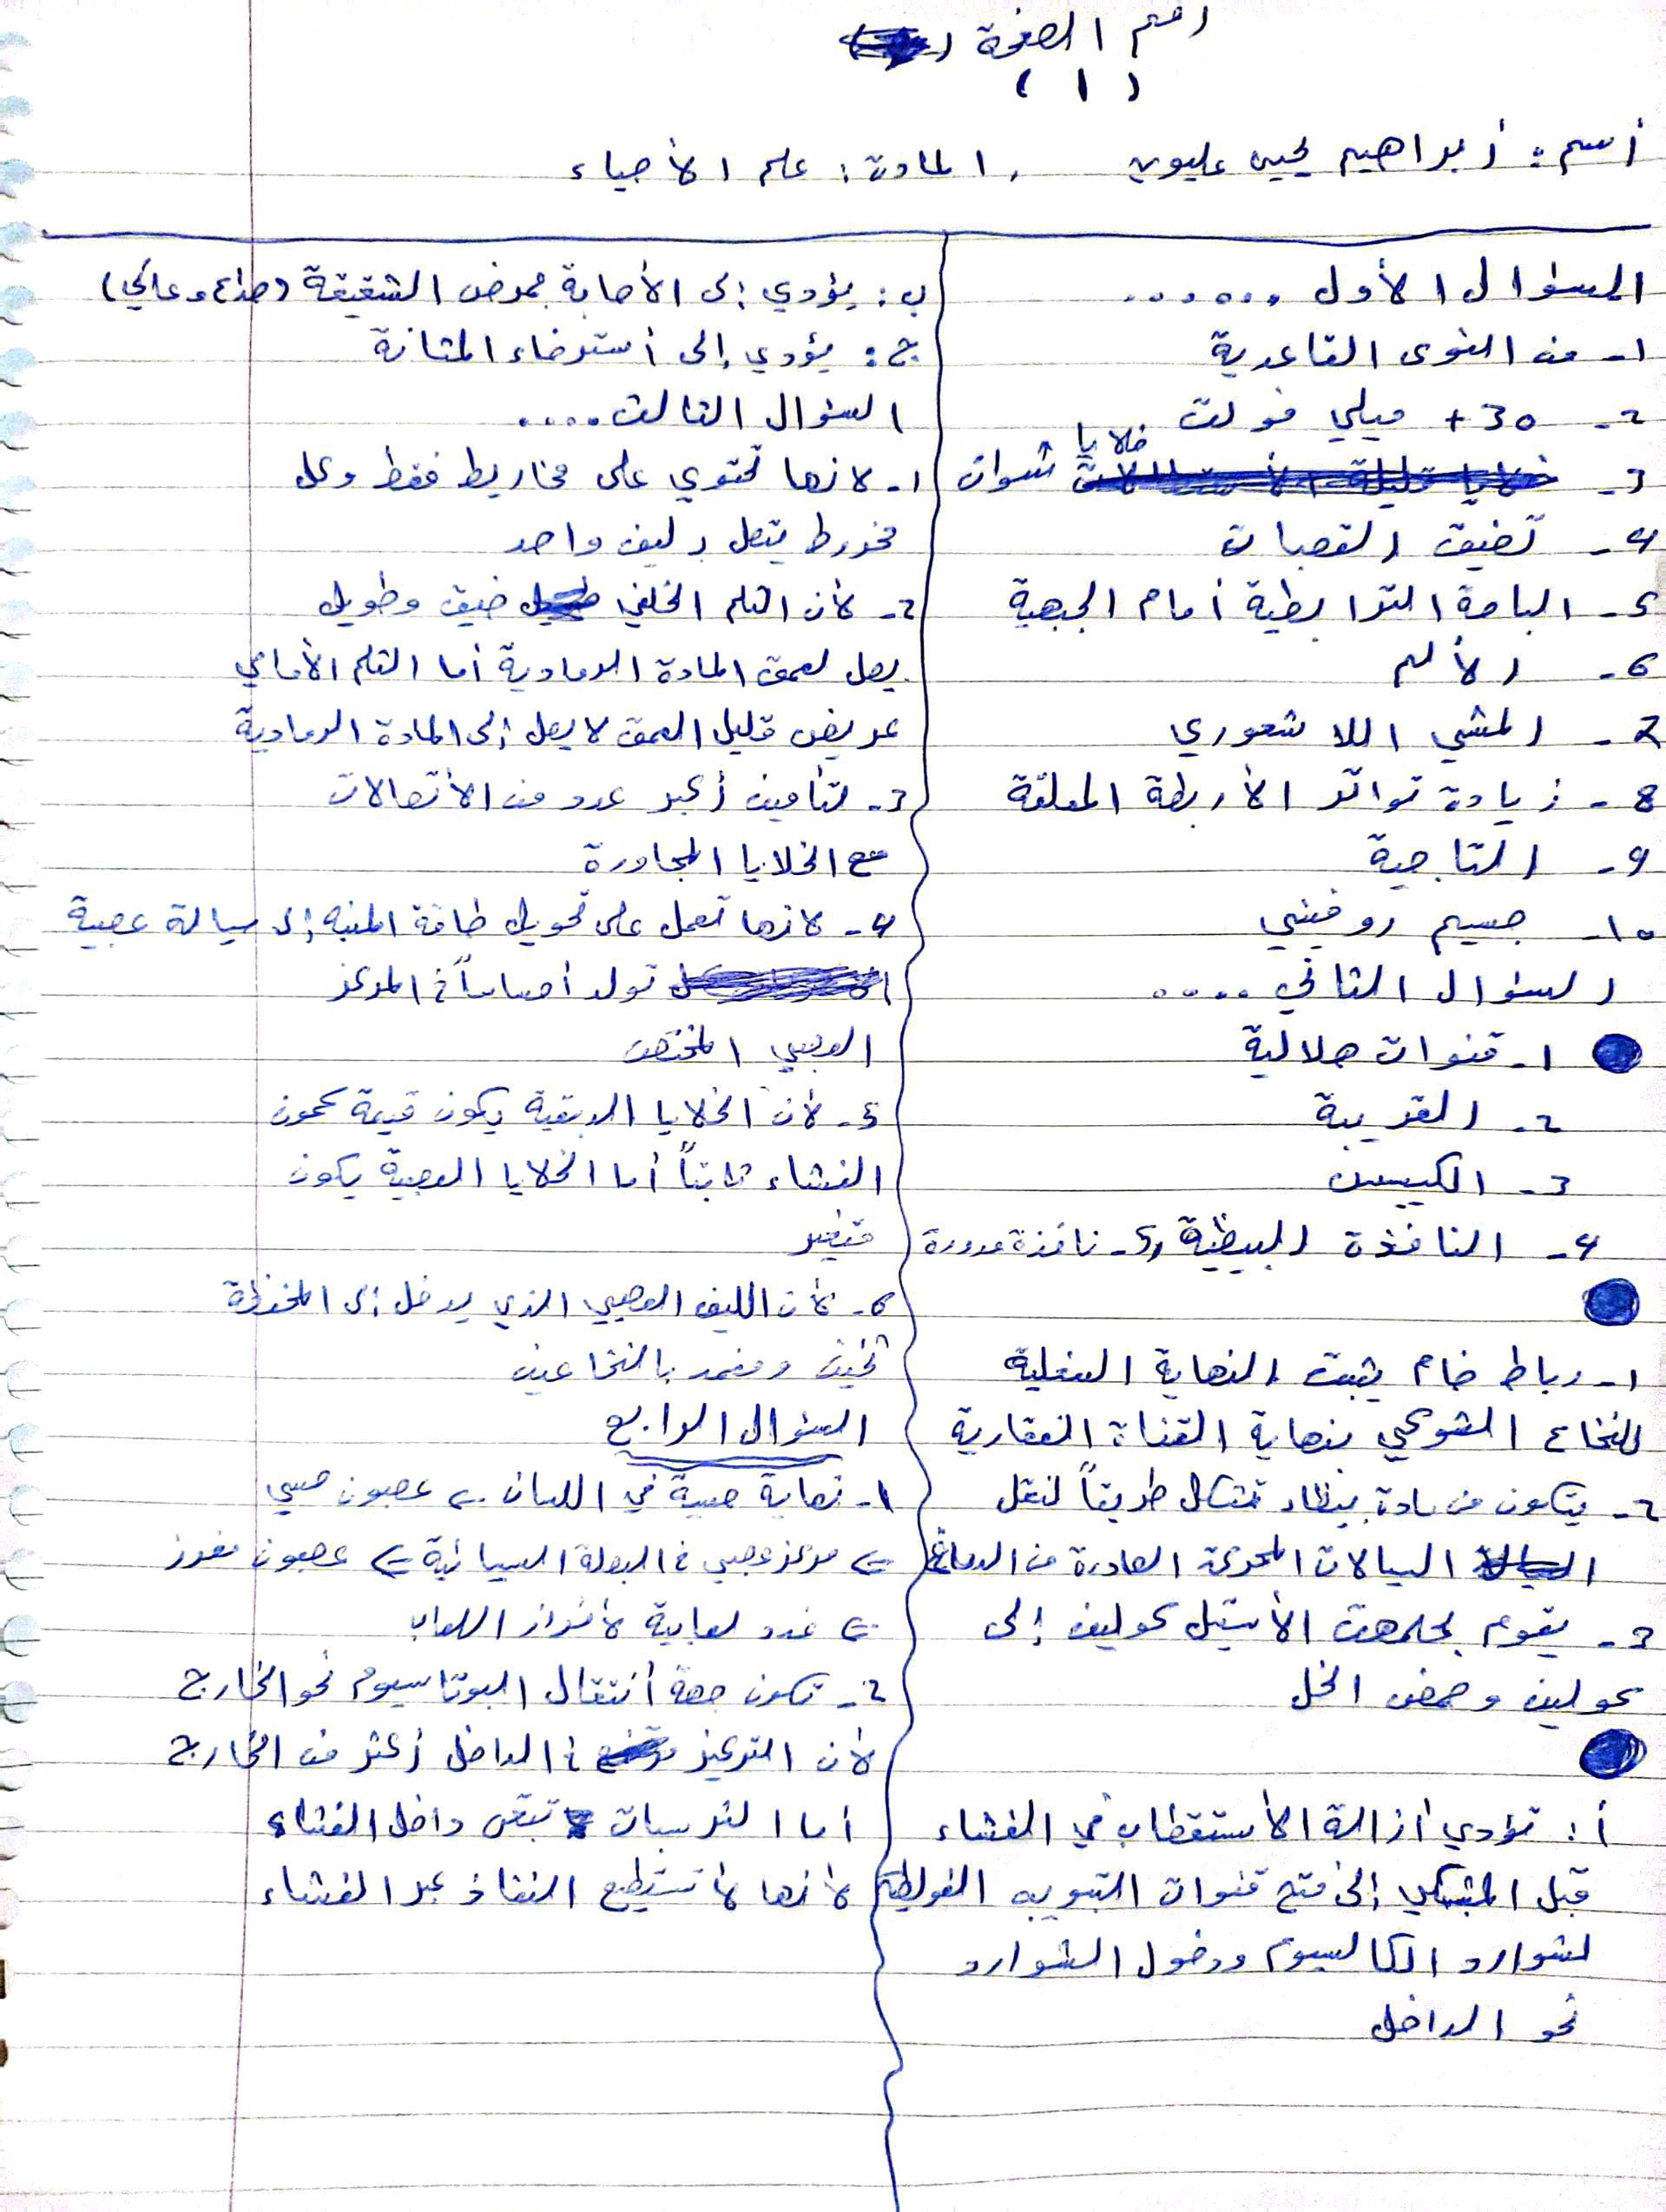 رقم الصفحة
( ١ )
أسم : أبراهيم يحيى عليوي , المادة : علم الأحياء
السؤال الأول ......
1- من النوى القاعدية
2- +30 ميلي فولت
3- خلايا شوان
4- تضيق القصبات
5- الباحة الترابطية أمام الجبهية
6- الألم
7- المشي اللاشعوري
8- زيادة تواتر الأربطة المعلقة
9- التاجية
10- جسيم روفيني
السؤال الثاني ....
1- قنوات هلالية
2- القريبة
3- الكييس
4- النافذة البيضية و5- نافذة مدورة
1- رباط ضام يثبت النهاية السفلية
للنخاع الشوكي بنهاية القناة الفقارية
2- يتكون من مادة بيضاء تشكل طريقاً لنقل
السيالات المحركة الصادرة من الدماغ
3- يقوم بحلمهة الأستيل كولين إلى
كولين وحمض الخل
أ : تؤدي أزالة الأستقطاب في الغشاء
قبل المشبكي إلى فتح قنوات التبويب الفولطية
لشوارد الكالسيوم ودخول الشوارد
نحو الداخل
ب : يؤدي إلى الأصابة بمرض الشقيقة (صداع وعائي)
ج : يؤدي إلى أسترخاء المثانة
السؤال الثالث ....
1- لانها تحتوي على مخاريط فقط وكل
مخروط يتصل بليف واحد
2- لأن الثلم الخلفي ضيق وطويل
يصل لعمق المادة الرمادية أما الثلم الأمامي
عريض قليل العمق لا يصل إلى المادة الرمادية
3- لتأمين أكبر عدد من الأتصالات
مع الخلايا المجاورة
4- لانها تعمل على تحويل طاقة المنبه إلى سيالة عصبية
تولد أحساساً في المركز
العصبي المختص
5- لأن الخلايا الدبقية يكون قيمة كمون
الغشاء ثابتاً أما الخلايا العصبية يكون
متغير
6- لأن الليف العصبي الذي يدخل إلى
ثخين ومغمد بالنخاعين
السؤال الرابع
1- نهاية حسية في اللسان ⇐ عصبون حسي
⇐ مركز عصبي في البصلة السيسائية ⇐ عصبون مفرز
⇐ غدد لعابية لأفراز اللعاب
2- تكون جهة أنتقال البوتاسيوم نحو الخارج
لأن التركيز في الداخل أكثر من الخارج
أما الشرسبات تبقى داخل الغشاء
لأنها لا تستطيع النفاذ عبر الغشاء